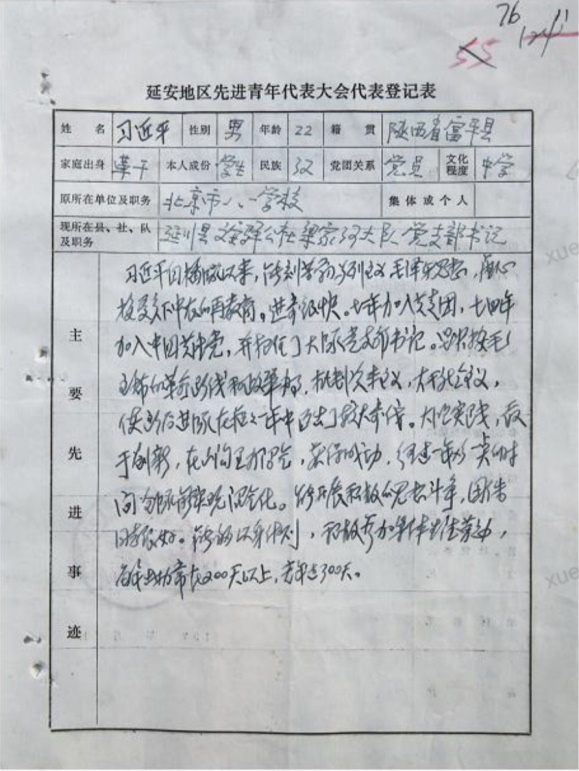 76
55
延安地区先进青年代表大会代表登记表
姓名 习近平 性别 男 年龄 22 籍贯 陕西省富平县
家庭出身 革干 本人成份 学生 民族 汉 党团关系 党员 文化程度 中学
原所在单位及职务 北京市八一学校 集体或个人
现所在县、社、队及职务 延川县文安驿公社梁家河大队党支部书记
主要先进事迹
习近平同插队以来，能刻苦学习马列主义毛泽东思想，虚心
接受贫下中农的再教育。进步很快。七一年加入共青团，七四年
加入中国共产党，并担任了大队党支部书记。坚决按毛
主席的革命路线和政策办，批判资本主义，大干社会主义，
使后进队在一年中迈出了较大步伐。大胆实践，敢
于创新，在沟里办沼气，获得成功，经过一年多一点的时
间全队实现沼气化。能开展积极的思想斗争，团结
同志好。能够以身作则，积极参加集体生产劳动，
每年出勤都在200天以上，去年达300天。